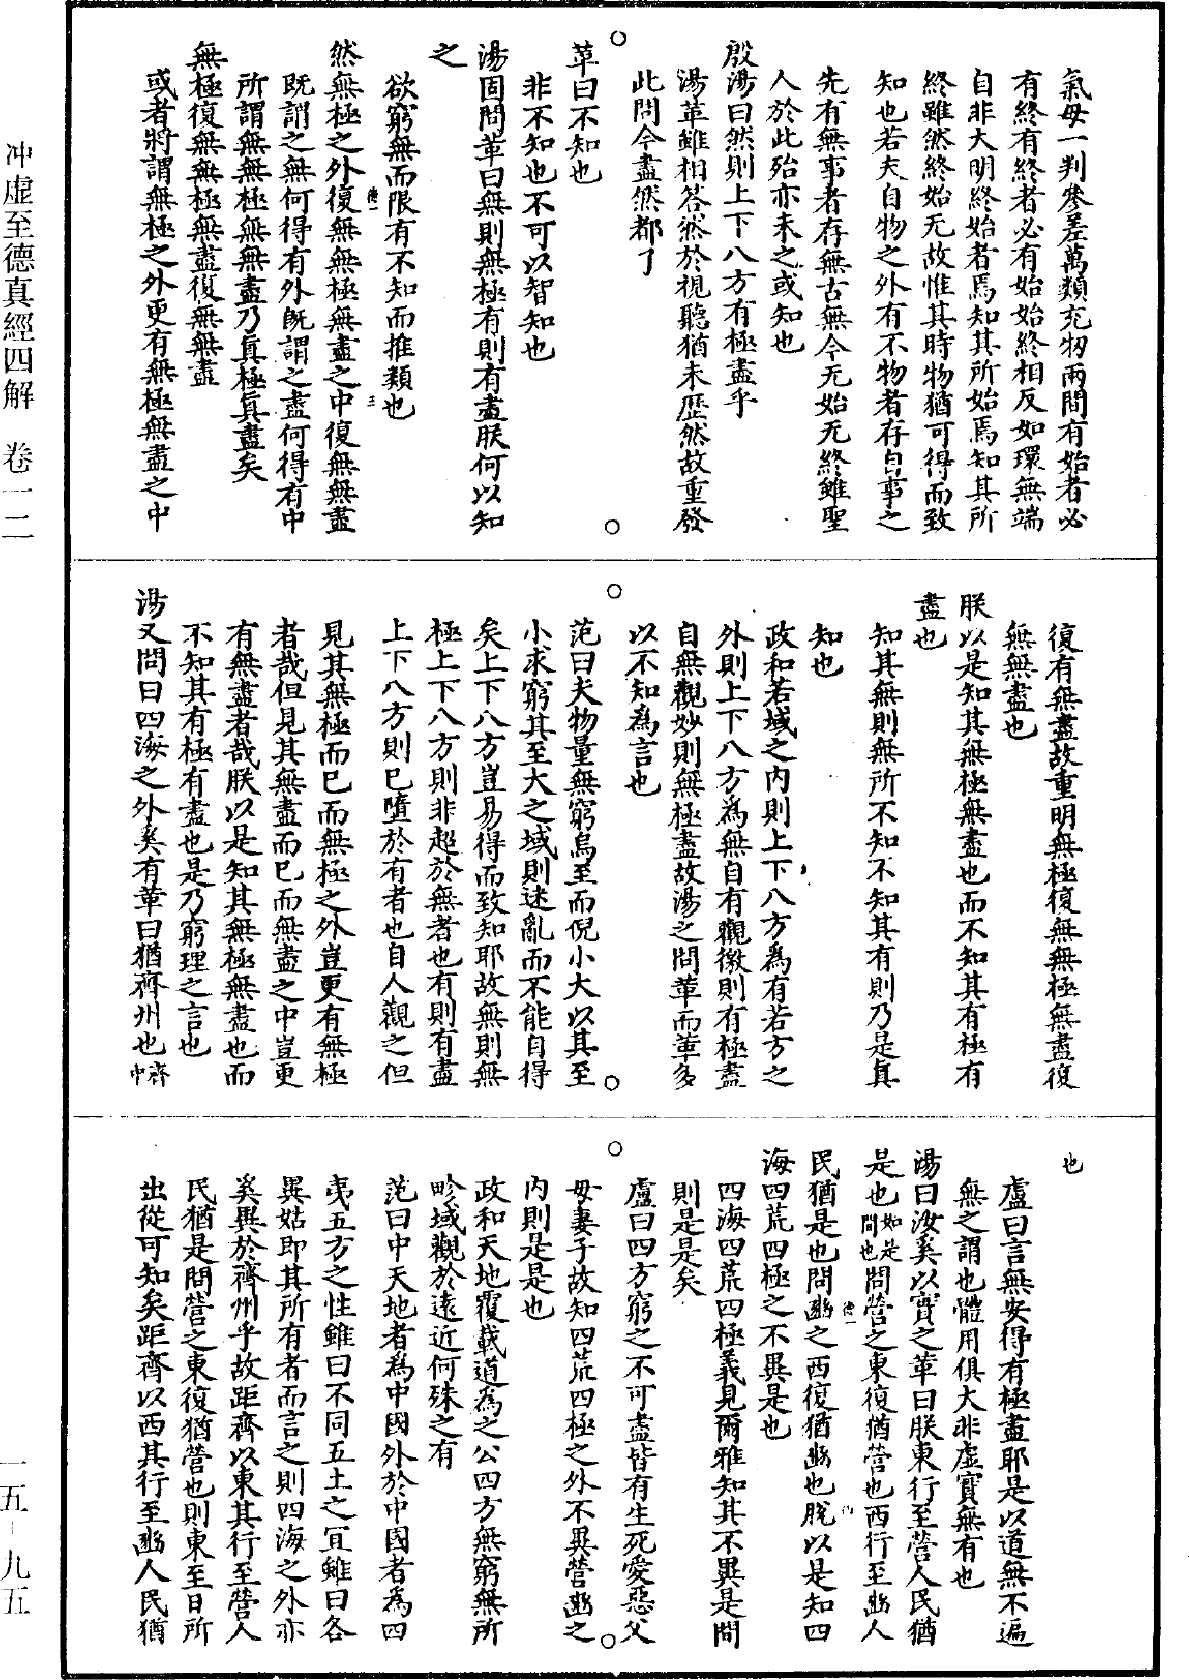 氣母一判參差萬類充物兩間有始者必
有終有終者必有始始終相反如環無端
自非大明終始者焉知其所始焉知其所
終雖然終始无故惟其時物猶可得而致
知也若夫自物之外有不物者存自事之
先有無事者存無古無今无始无終雖聖
人於此殆亦未之或知也
殷湯曰然則上下八方有極盡乎
湯革雖相答然於視聽猶未歷然故重發
此問今盡然都了
革曰不知也
非不知也不可以智知也
湯固問革曰無則無極有則有盡朕何以知
之
欲窮無而限有不知而推類也
然無極之外復無無極無盡之中復無無盡
既謂之無何得有外旣謂之盡何得有中
所謂無無極無無盡乃真極真盡矣
無極復無無極無盡復無無盡
或者將謂無極之外更有無極無盡之中
復有無盡故重明無極復無無極無盡復
無無盡也
朕以是知其無極無盡也而不知其有極有
盡也
知其無則無所不知不知其有則乃是真
知也
政和若域之内則上下八方爲有若方之
外則上下八方爲無自有觀徼則有極盡
自無觀妙則無極盡故湯之問革而革多
以不知爲言也
范曰夫物量無窮烏至而倪小大以其至
小求窮其至大之域則迷亂而不能自得
矣上下八方豈易得而致知耶故無則無
極上下八方則非超於無者也有則有盡
上下八方則已墮於有者也自人觀之但
見其無極而已而無極之外豈更有無極
者哉但見其無盡而已而無盡之中豈更
有無盡者哉朕以是知其無極無盡也而
不知其有極有盡也是乃窮理之言也
湯又問曰四海之外奚有革曰猶齊州也齊中
也
盧曰言無安得有極盡耶是以道無不遍
無之謂也體用俱大非虛實無有也
湯曰汝奚以實之革曰朕東行至營人民猶
是也如是間也問營之東復猶營也西行至豳人
民猶是也問豳之西復猶豳也朕以是知四
海四荒四極之不異是也
四海四荒四極義見爾雅知其不異是間
則是是矣
盧曰四方窮之不可盡皆有生死愛惡父
母妻子故知四荒四極之外不異營豳之
内則是是也
政和天地覆載道為之公四方無窮無所
畛域觀於遠近何殊之有
范曰中天地者為中國外於中國者為四
夷五方之性雖曰不同五土之宜雖曰各
異姑即其所有者而言之則四海之外亦
奚異於齊州乎故距齊以東其行至營人
民猶是問營之東復猶營也則東至日所
出從可知矣距齊以西其行至豳人民猶
冲虛至德真經四解 卷一二
一五-九五